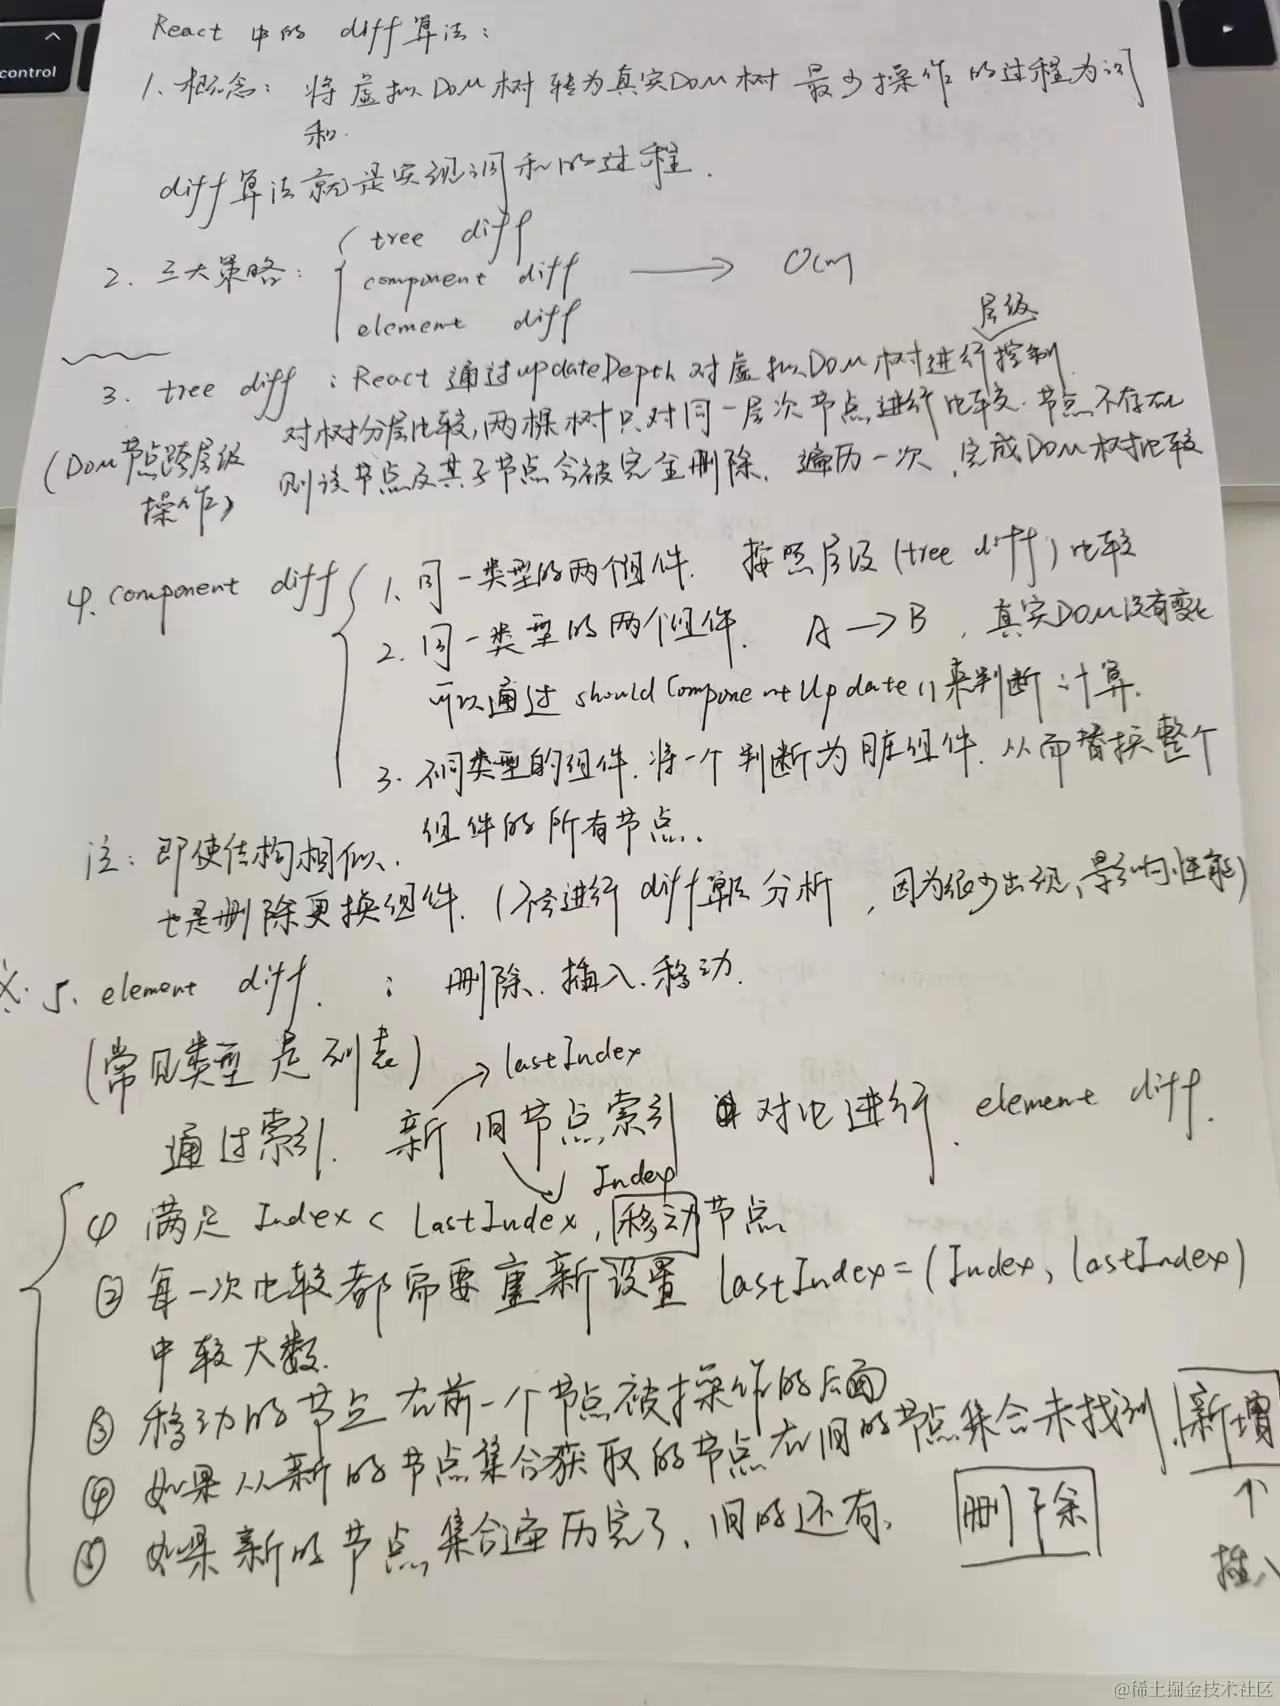 control
React 中的 diff 算法：
1. 概念：将虚拟DOM树转为真实DOM树 最少操作的过程为调
和.
diff算法就是实现调和的过程.
2. 三大策略：
tree diff
component diff
element diff
→ O(n)
层级
3. tree diff：React 通过updateDepth对虚拟DOM树进行控制.
对树分层比较,两棵树只对同一层次节点进行比较.节点不存在
(DOM节点跨层级
操作)
则该节点及其子节点会被完全删除. 遍历一次,完成DOM树比较
4. component diff
1. 同一类型的两个组件. 按照层级(tree diff)比较
2. 同一类型的两个组件. A → B , 真实DOM没有变化
可以通过 shouldComponentUpdate()来判断计算.
3. 不同类型的组件.将一个判断为脏组件.从而替换整个
组件的所有节点.
注：即使结构相似.
也是删除更换组件. (不会进行 diff算法分析, 因为很少出现、影响性能)
5. element diff. ： 删除.插入.移动.
(常见类型是列表)
→ lastIndex
通过索引. 新旧节点索引 对比进行 element diff.
Index
① 满足 Index < lastIndex, 移动节点
② 每一次比较都需要重新设置 lastIndex = (Index, lastIndex)
中较大数.
③ 移动的节点在前一个节点被操作的后面
④ 如果从新的节点集合获取的节点在旧的节点集合未找到, 新增
↑
插入
⑤ 如果新的节点集合遍历完了, 旧的还有, 删除
@稀土掘金技术社区